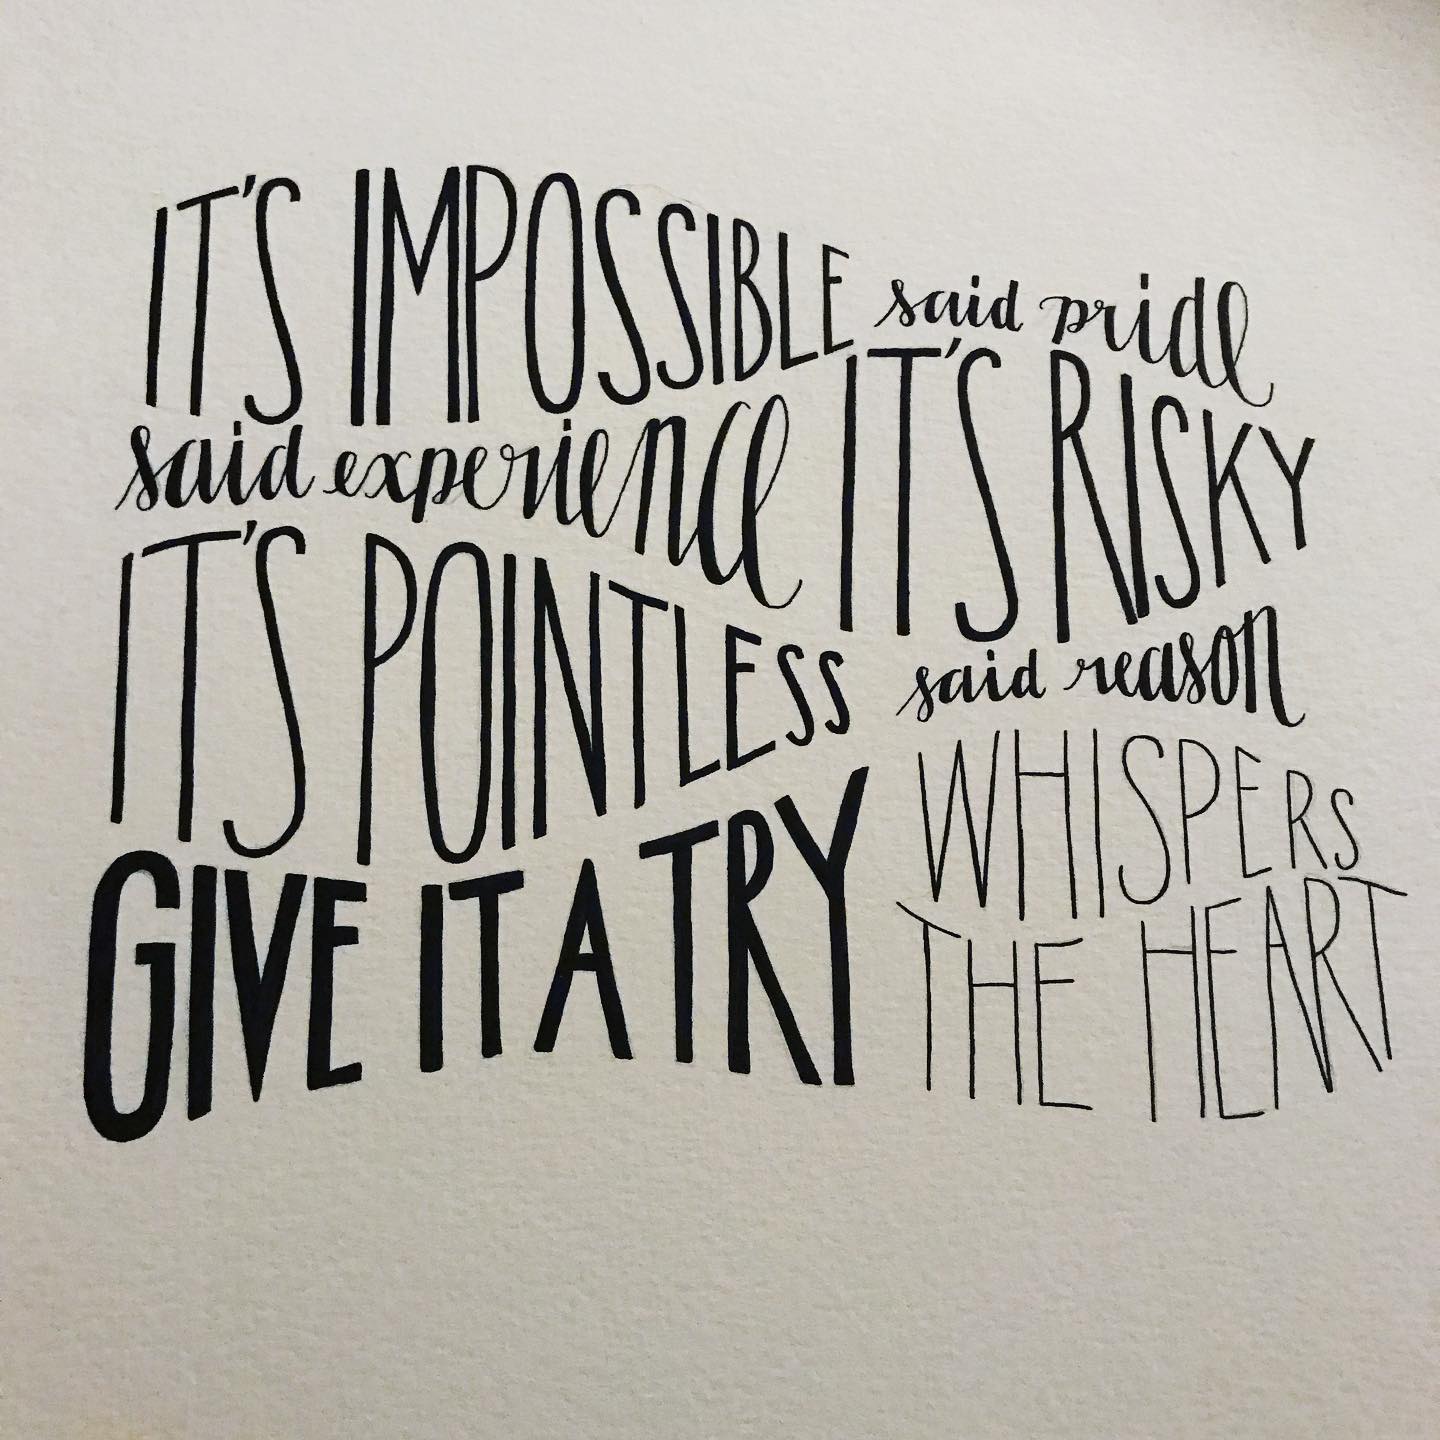 IT'S IMPOSSIBLE said pride
said experience IT'S RISKY
IT'S POINTLESS said reason
GIVE IT A TRY WHISPERS
THE HEART